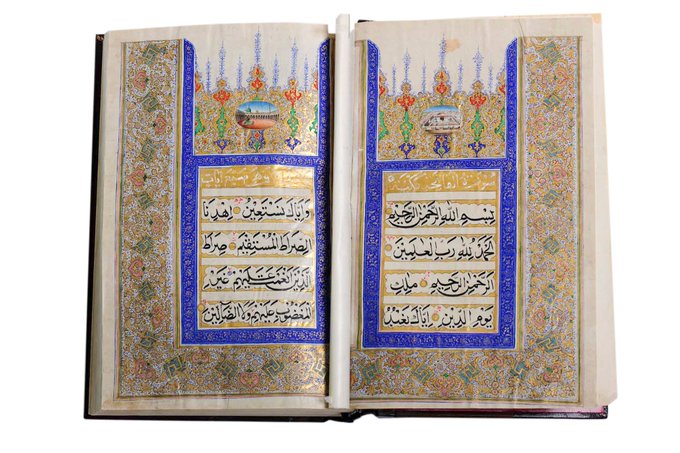 سورة الفاتحة مكية
بسم الله الرحمن الرحيم
الحمد لله رب العلمين
الرحمن الرحيم ملك
يوم الدين اياك نعبد
وهي سبع ايات
واياك نستعين اهدنا
الصراط المستقيم صراط
الذين انعمت عليهم غير
المغضوب عليهم ولا الضالين